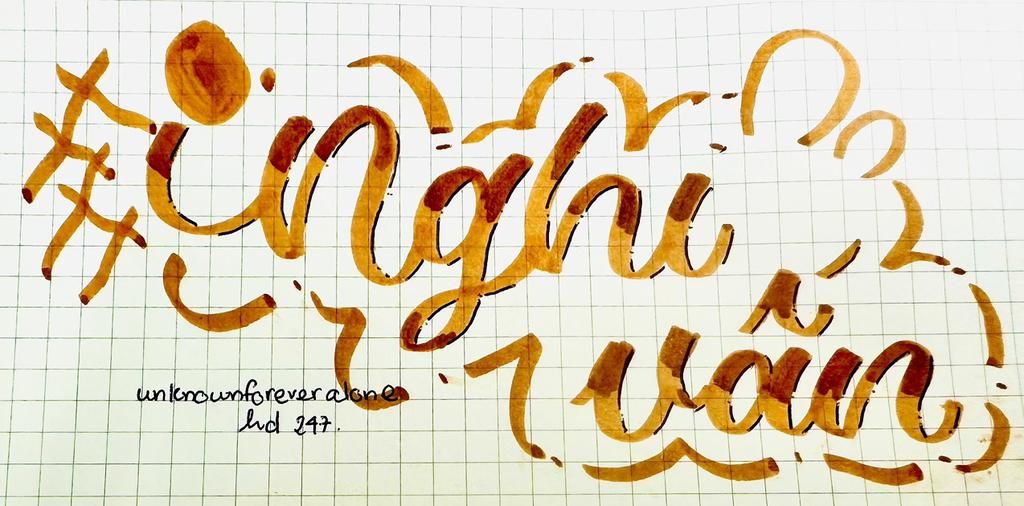 #nghi
vấn
unknownforeveralone
hd 247.